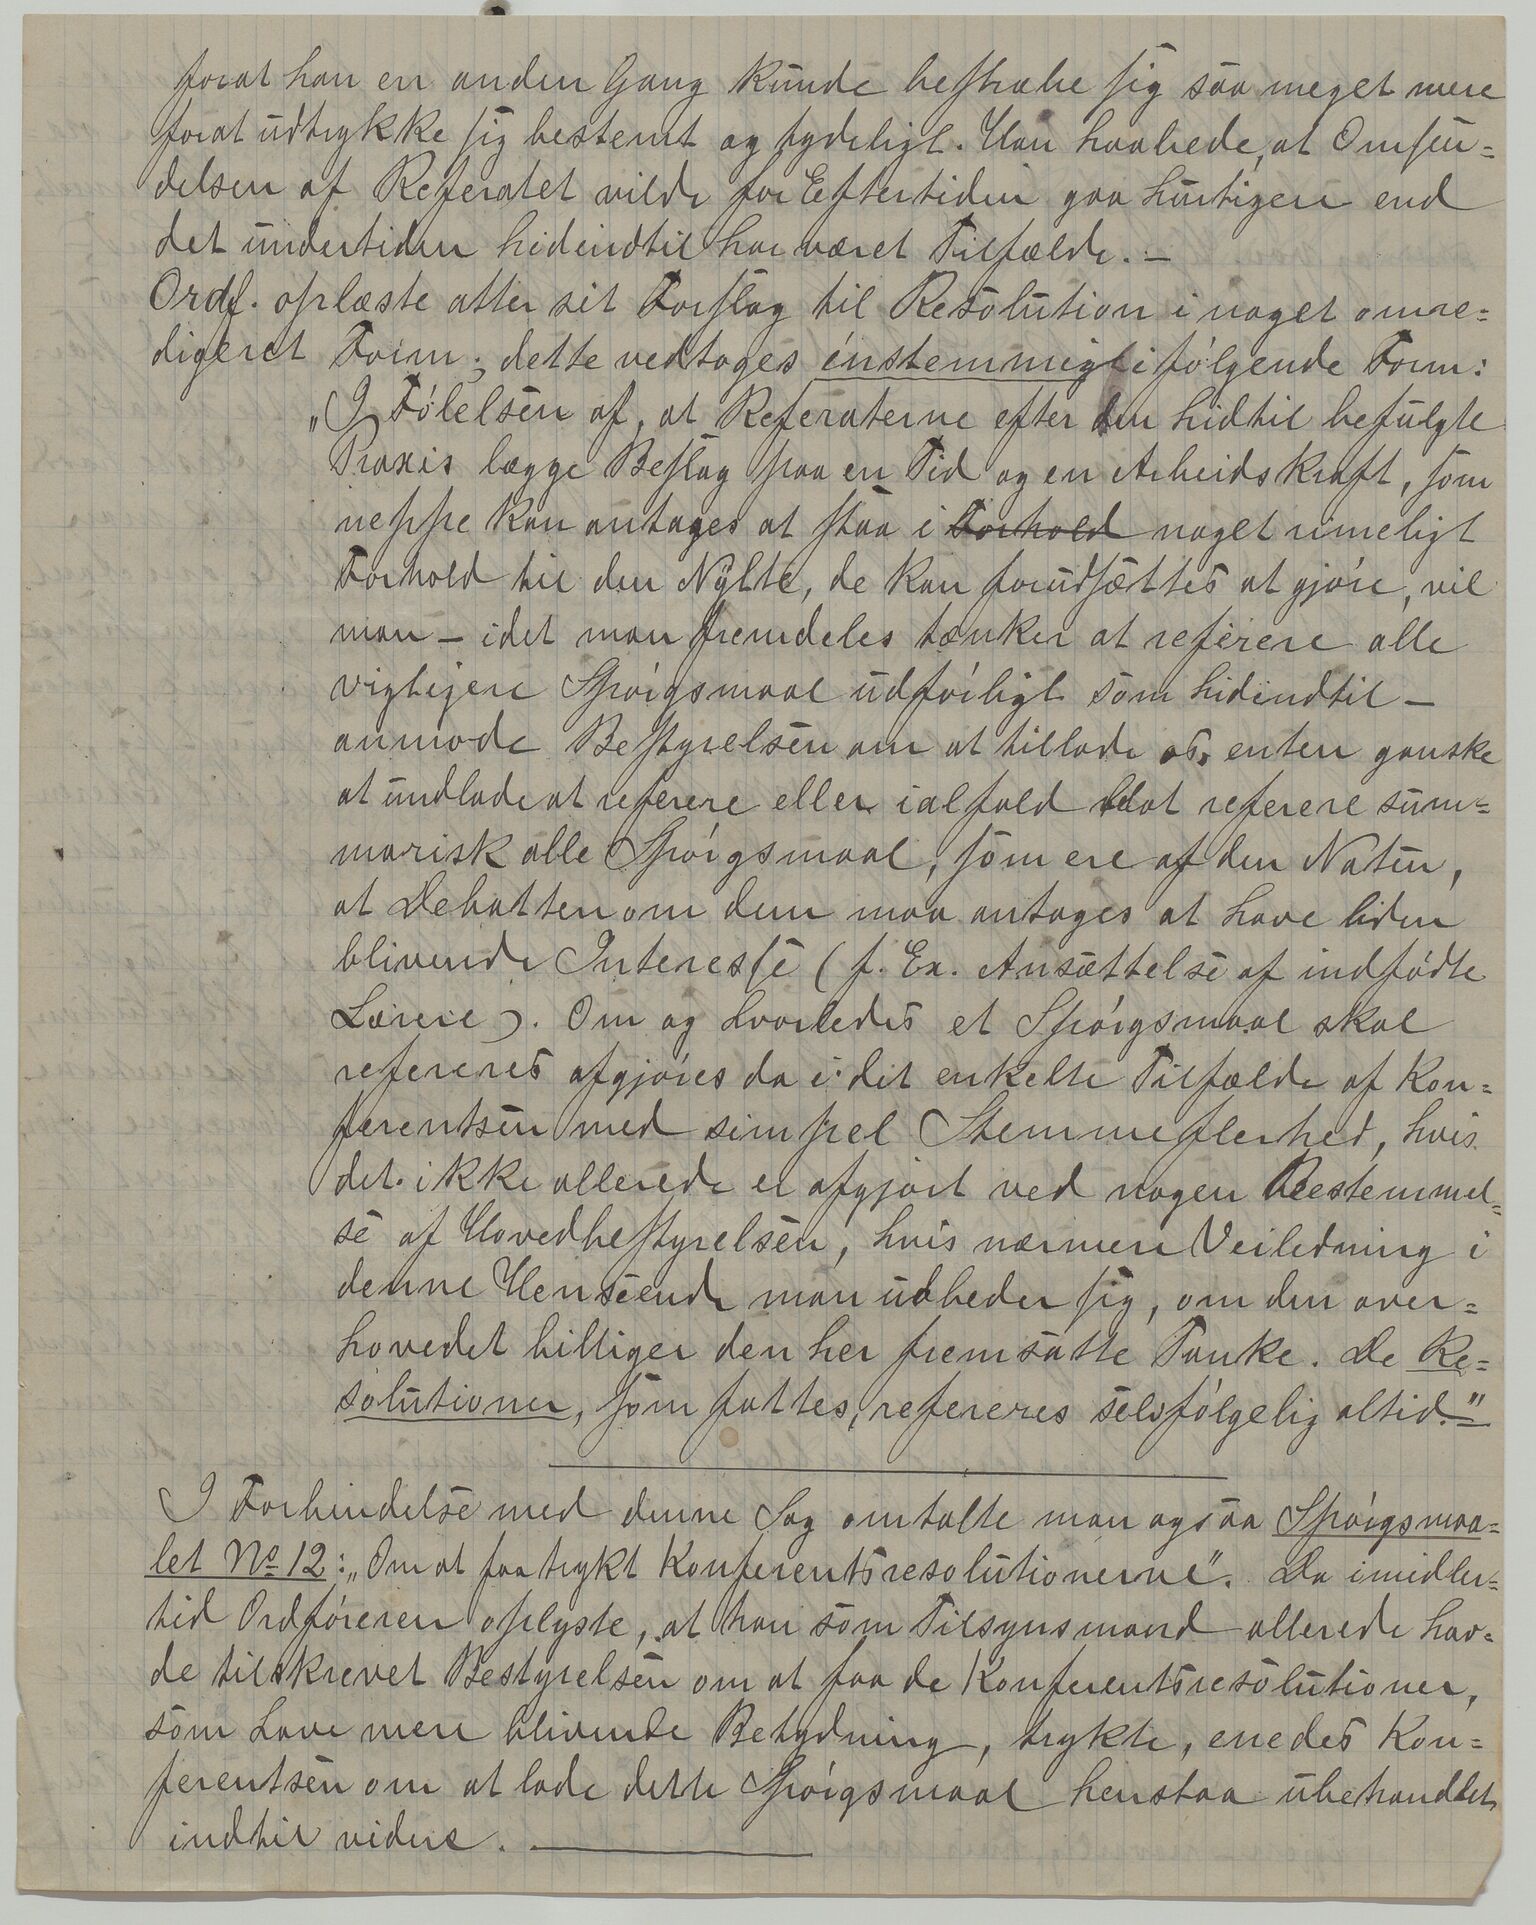 forat han en anden Gang kunde bestræbe sig saa meget mere
forat udtrykke sig bestemt og tydeligt. Han haabede, at Omsen=
delsen af Referatet vilde for Eftertiden gaa hurtigere end
det undertiden hidindtil har været Tilfælde. —
Ordf. oplæste atter sit Forslag til Resolution i noget omre=
digeret Form; dette vedtoges énstemmigt i følgende Form:
„I Følelsen af, at Referaterne efter den hidtil befulgte
Praxis lægge Beslag paa en Tid og en Arbeidskraft, som
neppe kan antages at staa i Forhold noget rimeligt
Forhold til den Nytte, de kan forudsættes at gjøre, vil
man — idet man fremdeles tænker at referere alle
vigtigere Spørgsmaal udførligt som hidindtil —
anmode Bestyrelsen om at tillade os, enten ganske
at undlade at referere eller ialfald blot referere sum=
marisk alle Spørgsmaal, som ere af den Natur,
at Debatten om dem maa antages at have liden
blivende Interesse (f. Ex. Ansættelse af indfødte
Lærere). Om og hvorledes et Spørgsmaal skal
refereres afgjøres da i det enkelte Tilfælde af Kon=
ferentsen med simpel Stemmeflerhed, hvis
det ikke allerede er afgjort ved nogen Beestemmel=
se af Hovedbestyrelsen, hvis nærmere Veiledning i
denne Henseende man udbeder sig, om den over=
hovedet billiger den her fremsatte Tanke. De Re=
solutioner, som fattes, refereres selvfølgelig altid."
I Forbindelse med denne Sag omtalte man ogsaa Spørgsmaa=
let No 12: „Om at faa trykt Konferentsresolutionerne". Da imidler=
tid Ordføreren oplyste, at han som Tilsynsmand allerede hav=
de tilskrevet Bestyrelsen om at faa de Konferentsresolutioner,
som have mere blivende Betydning, trykte, enedes Kon=
ferentsen om at lade dette Spørgsmaal henstaa ubehandlet
indtil videre. —